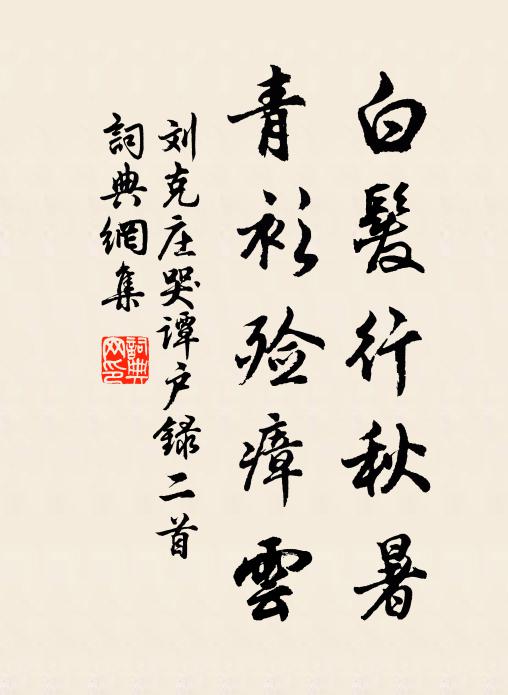 白髮行秋暑
青衫殓瘴雲
刘克庄哭谭户録二首
詞典網集
詞典網印